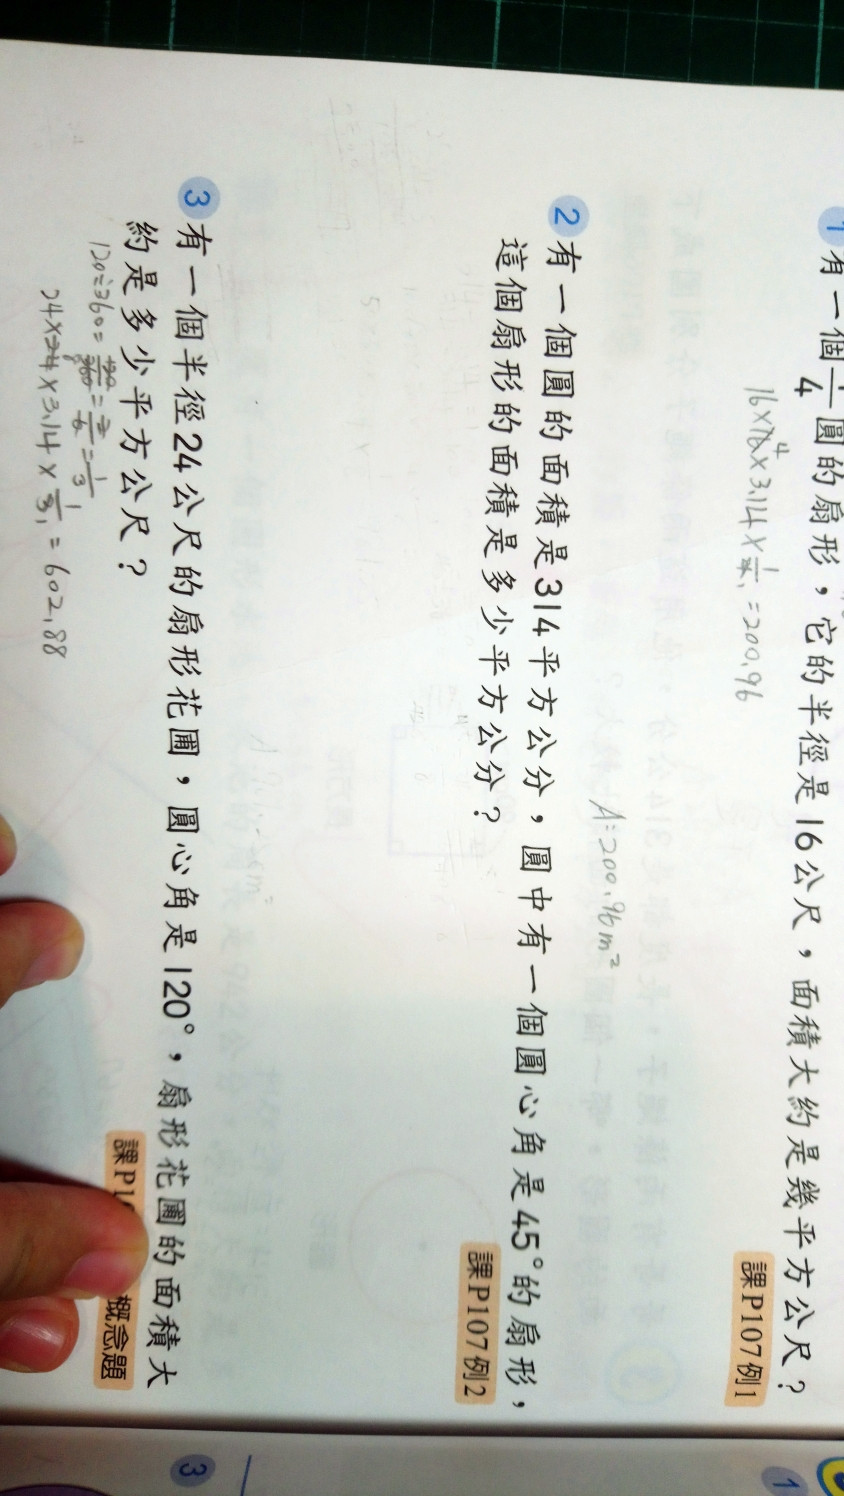 1 有一個1/4圓的扇形，它的半徑是16公尺，面積大約是幾平方公尺？
課P107例1
16×16 4×3.14×1/4 1=200.96
A:200.96m²
2 有一個圓的面積是314平方公分，圓中有一個圓心角是45°的扇形，
這個扇形的面積是多少平方公分？
課P107例2
3 有一個半徑24公尺的扇形花圃，圓心角是120°，扇形花圃的面積大
約是多少平方公尺？
課P1
概念題
120÷360=120/360=2/6=1/3
24×24 8×3.14×1/3 1=602.88
1
3